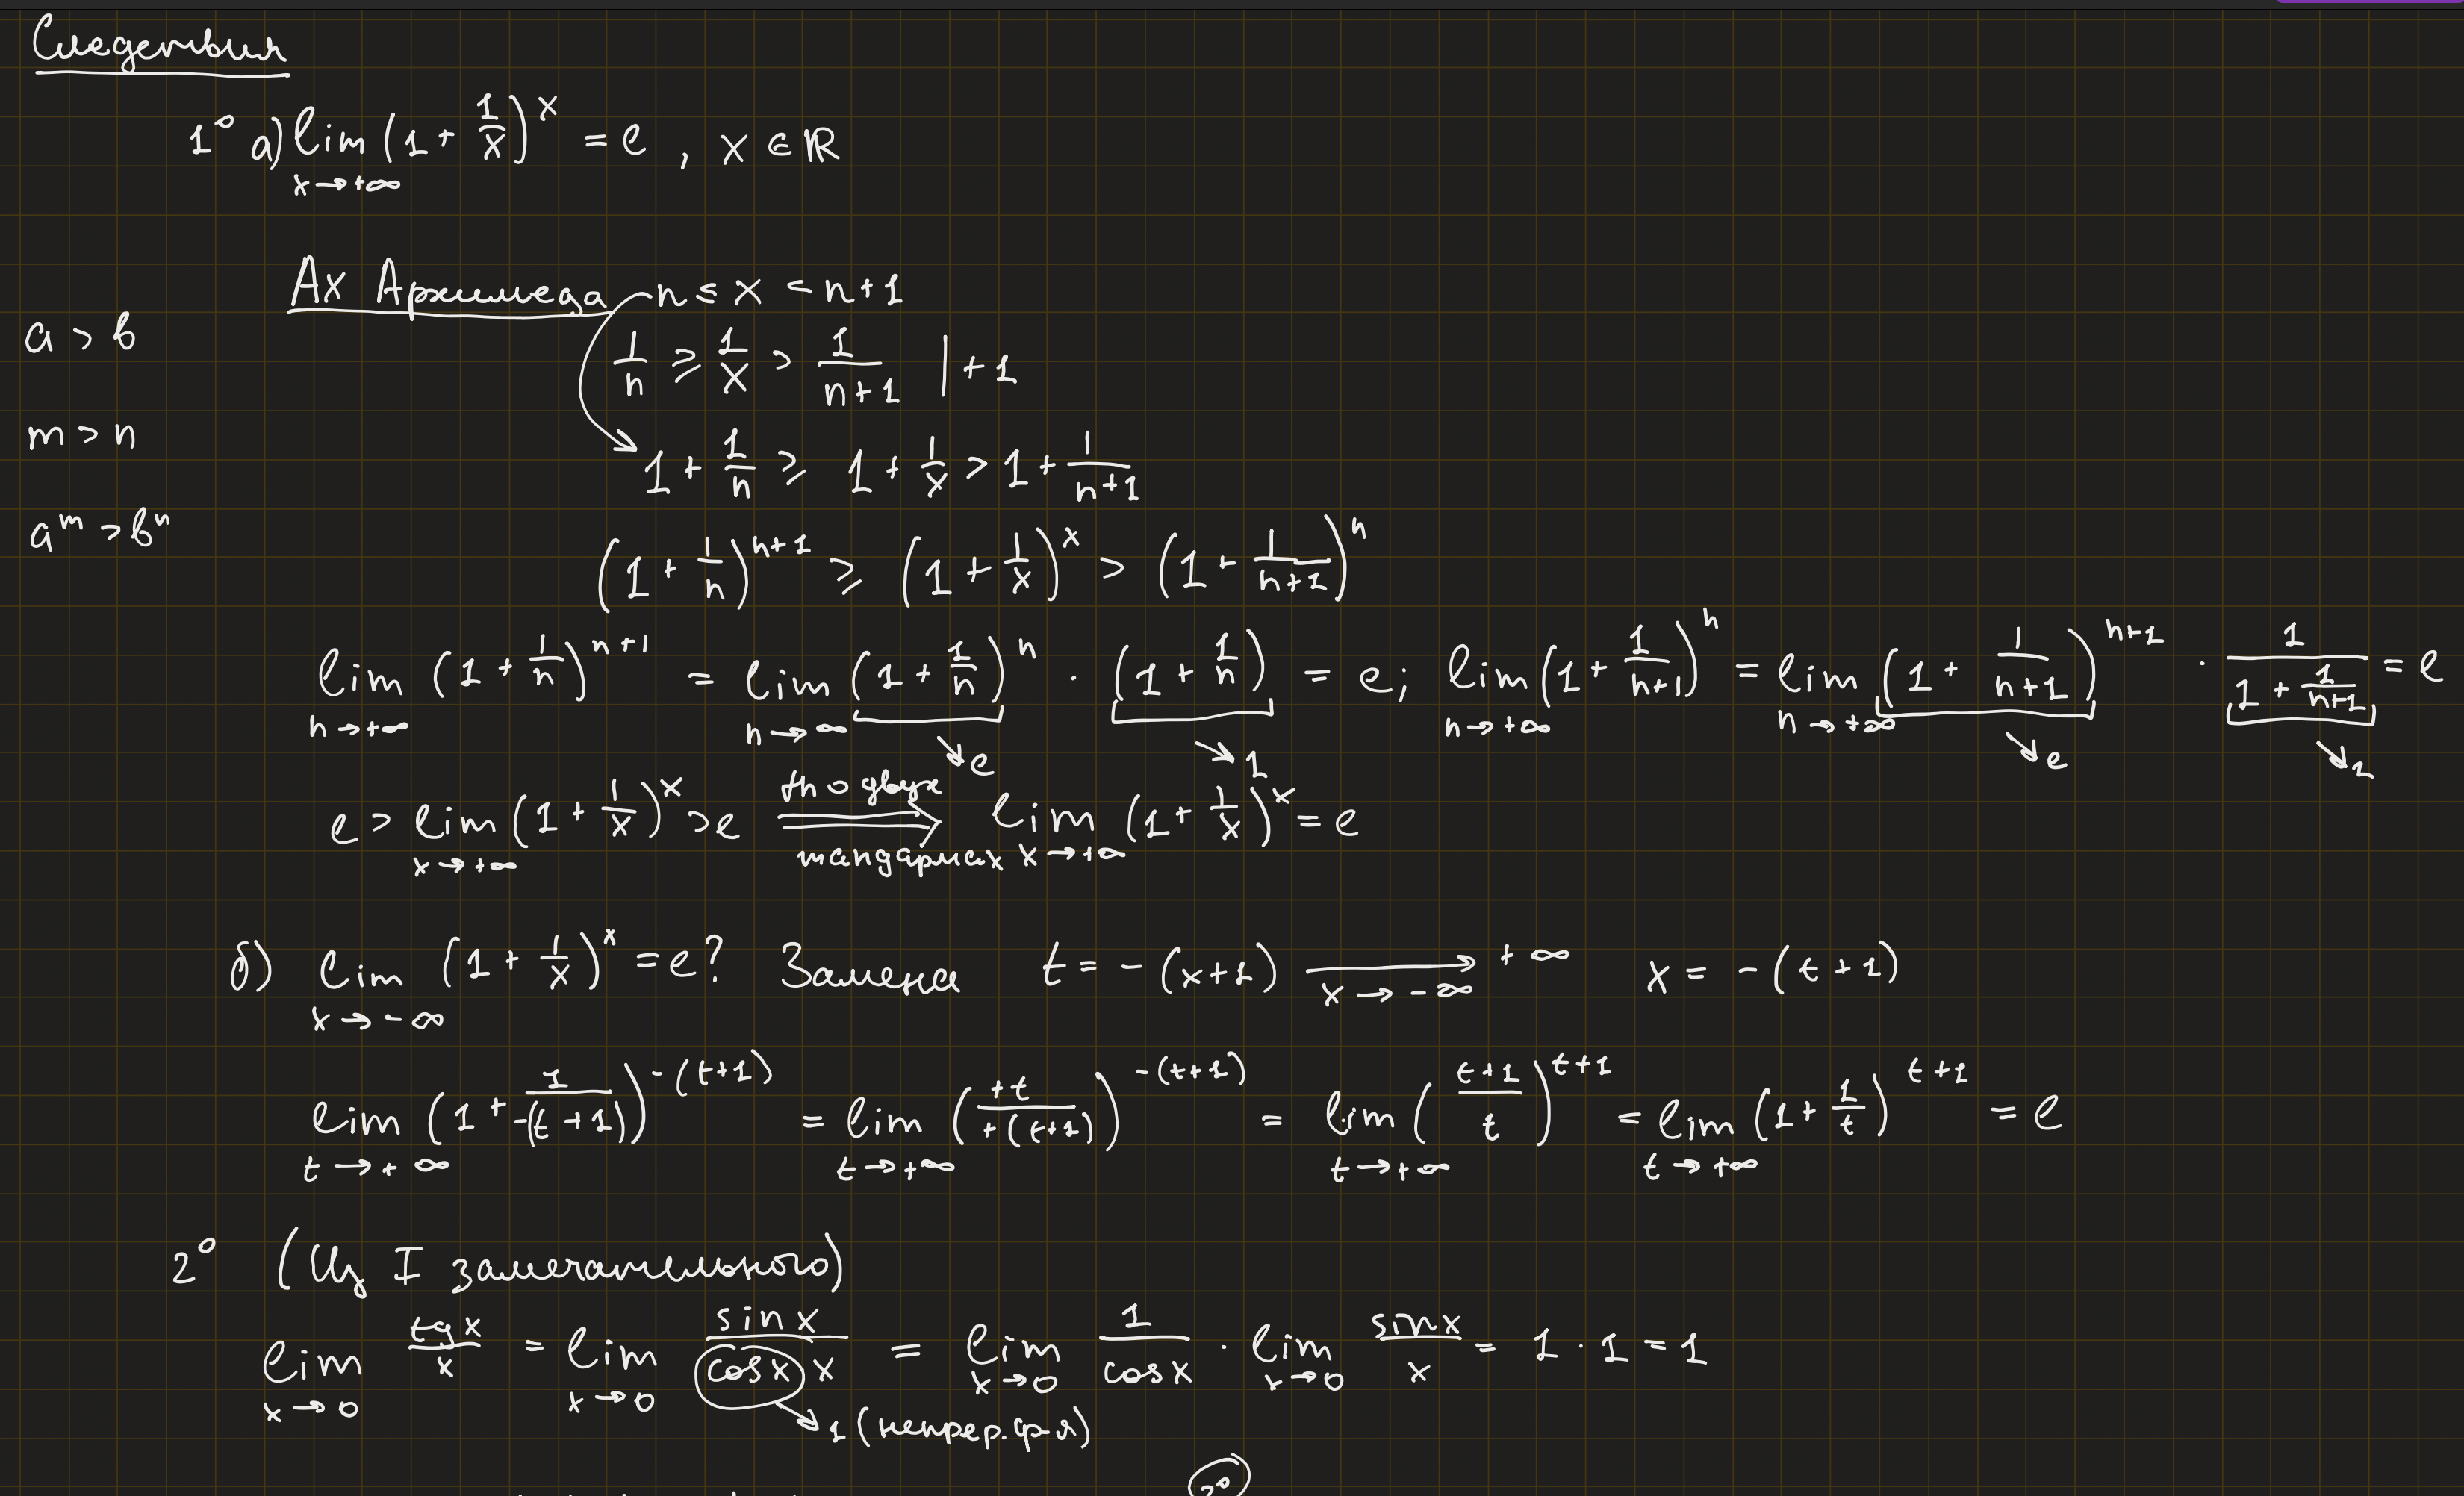 Следствия
1° a) lim_{x→+∞} (1 + 1/x)^x = e , x ∈ ℝ
Ах Архимеда n ≤ x < n+1
a > b
1/n ≥ 1/x > 1/(n+1) | +1
m > n
1 + 1/n ≥ 1 + 1/x > 1 + 1/(n+1)
a^m > b^n
(1 + 1/n)^{n+1} ≥ (1 + 1/x)^x > (1 + 1/(n+1))^n
lim_{n→+∞} (1 + 1/n)^{n+1} = lim_{n→∞} (1 + 1/n)^n · (1 + 1/n) = e; lim_{n→+∞} (1 + 1/(n+1))^n = lim_{n→+∞} (1 + 1/(n+1))^{n+1} · 1/(1 + 1/(n+1)) = e
↘ e ↘ 1 ↘ e ↘ 1
e > lim_{x→+∞} (1 + 1/x)^x > e ⟹ th о двух жандармах lim_{x→+∞} (1 + 1/x)^x = e
б) lim_{x→-∞} (1 + 1/x)^x = e? Замена t = -(x+1) →_{x→-∞} +∞ x = -(t+1)
lim_{t→+∞} (1 + 1/(-(t+1)))^{-(t+1)} = lim_{t→+∞} (+t/(+(t+1)))^{-(t+1)} = lim_{t→+∞} ((t+1)/t)^{t+1} = lim_{t→+∞} (1 + 1/t)^{t+1} = e
2° (Из I замечательного)
lim_{x→0} tg x/x = lim_{x→0} sin x/(cos x x) = lim_{x→0} 1/cos x · lim_{x→0} sin x/x = 1 · 1 = 1
↘ 1 (непрер. ф-я)